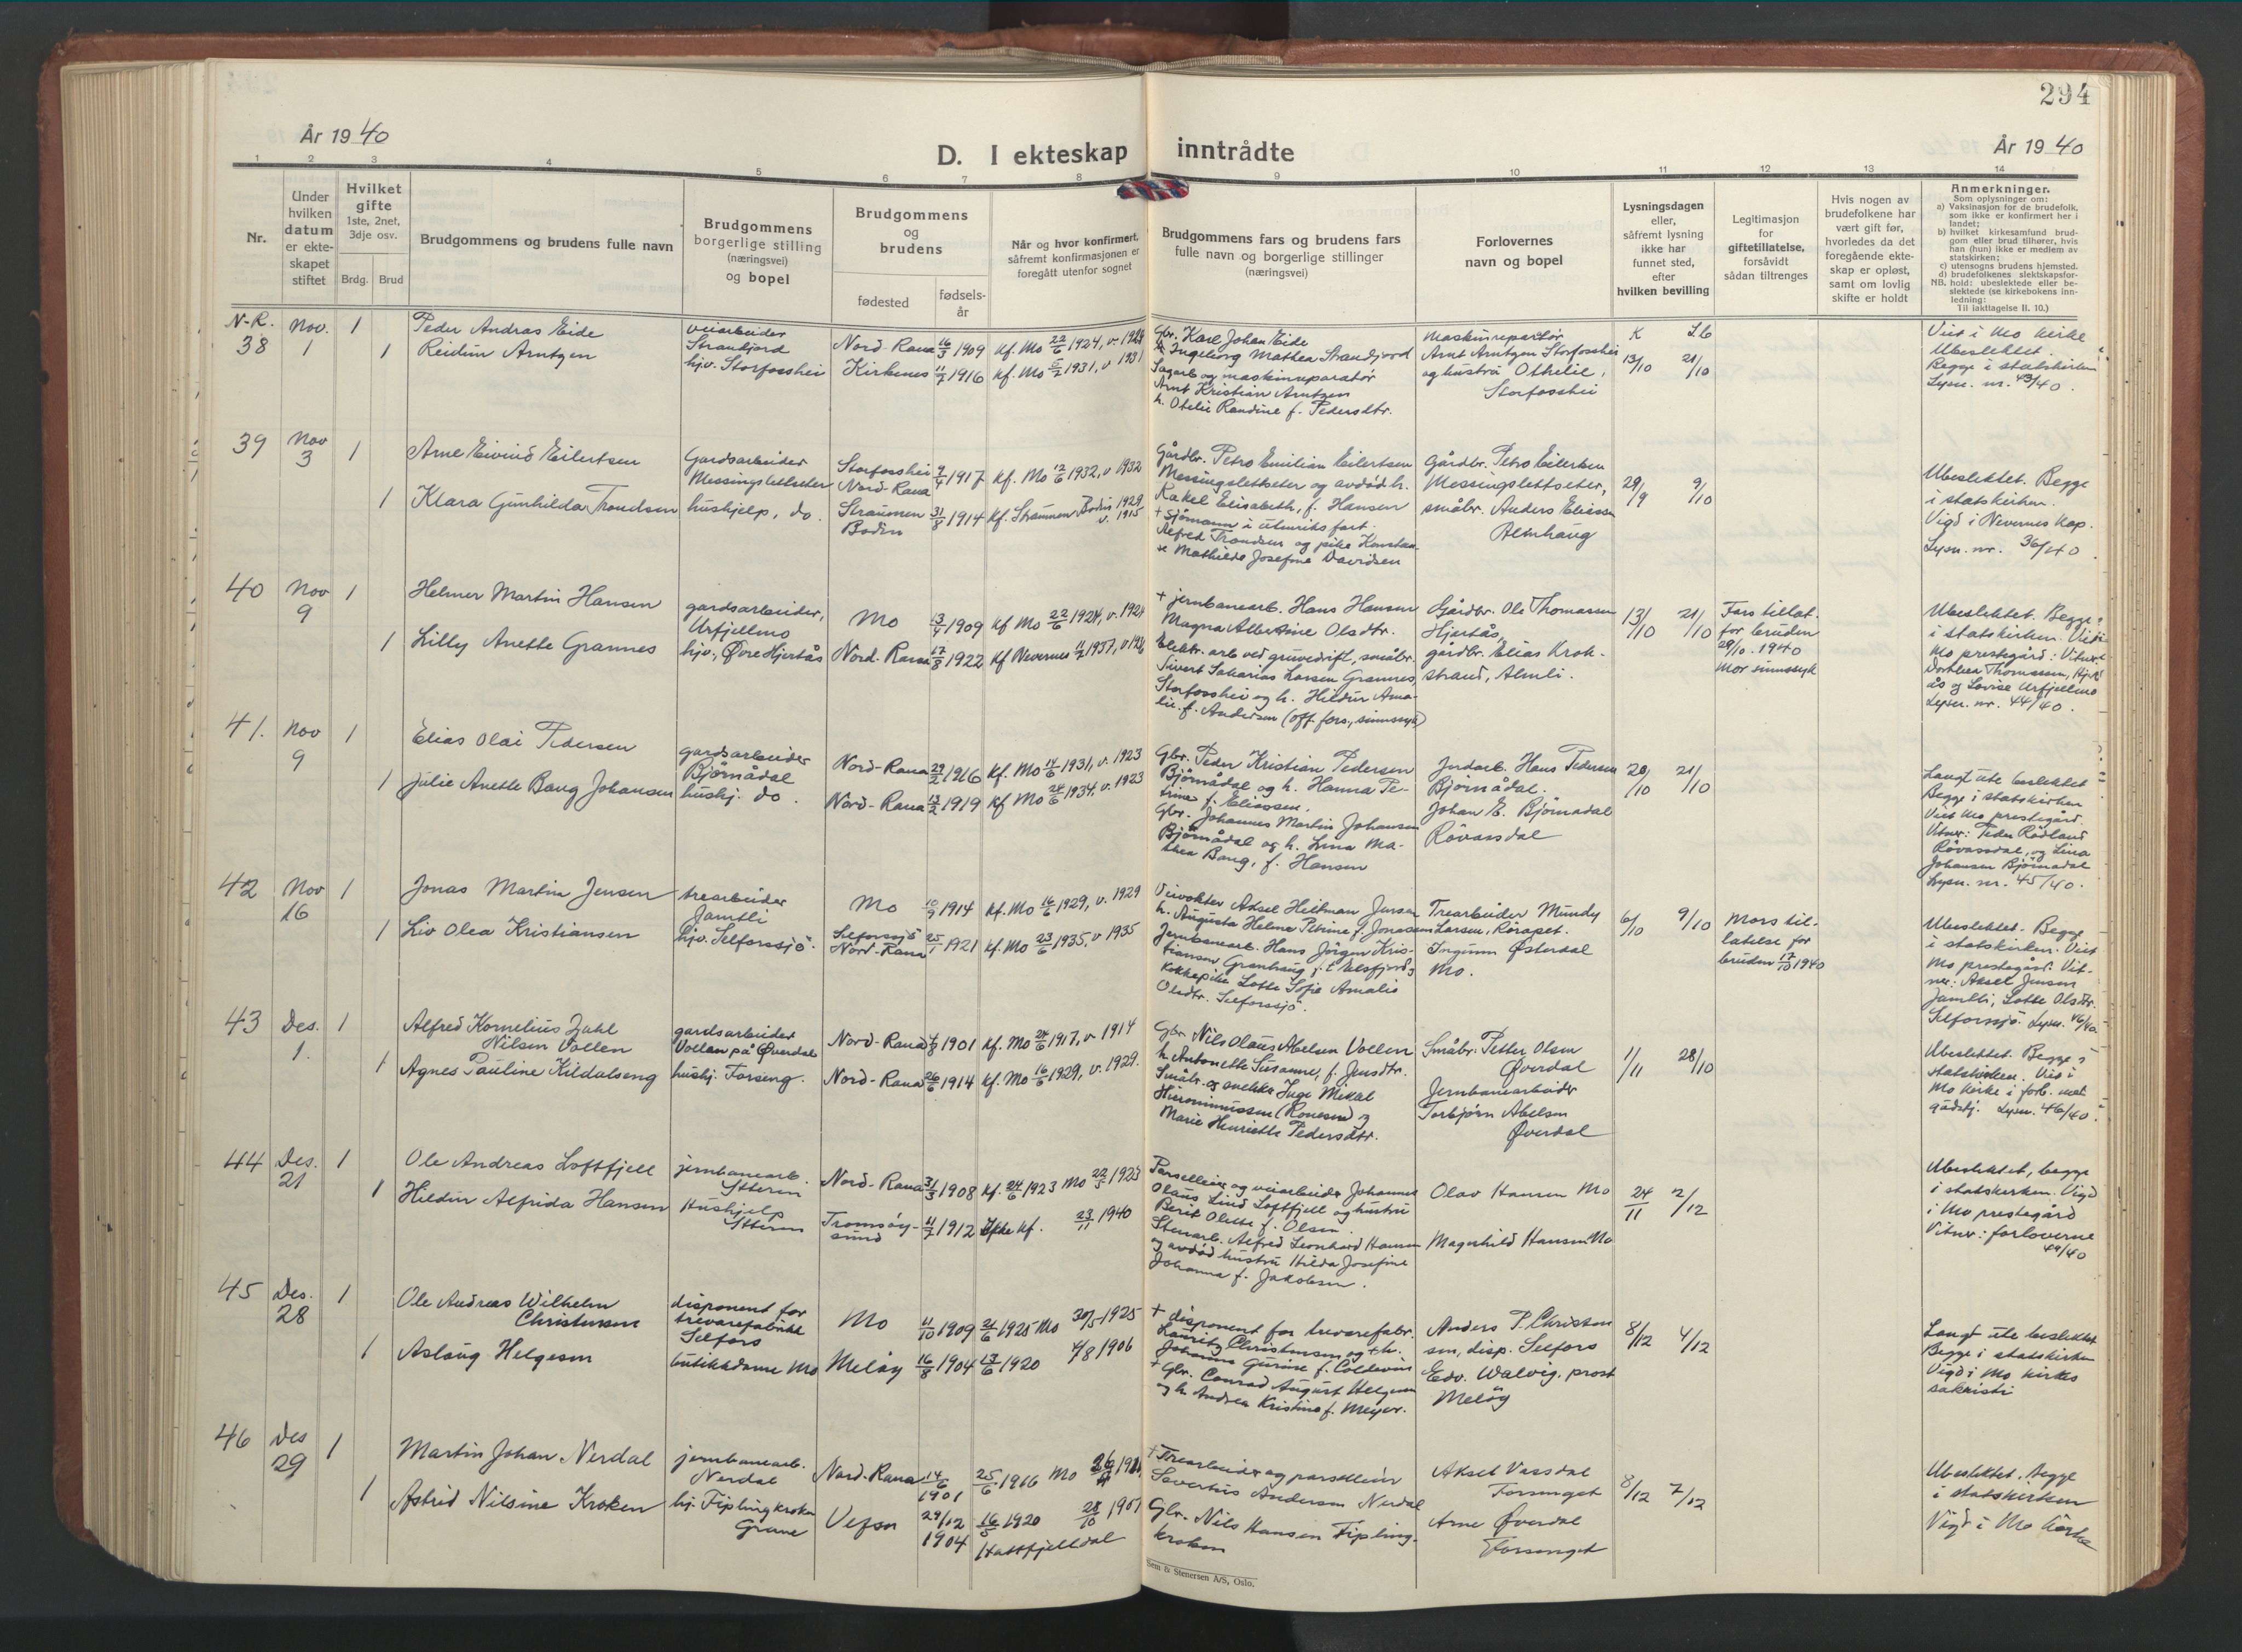 294
År 1940
År 1940
D. I ekteskap inntrådte
1 2 3 4 5 6 7 8 9 10 11 12 13 14
Nr.
Under hvilken datum er ekteskapet stiftet
Hvilket gifte 1ste, 2net, 3dje osv.
Brdg. Brud
Brudgommens og brudens fulle navn
Brudgommens borgerlige stilling (næringsvei) og bopel
Brudgommens og brudens
fødested
fødsels-år
Når og hvor konfirmert, såfremt konfirmasjonen er foregått utenfor sognet
Brudgommens fars og brudens fars fulle navn og borgerlige stillinger (næringsvei)
Forlovernes navn og bopel
Lysningsdagen eller, såfremt lysning ikke har funnet sted, efter hvilken bevilling
Legitimasjon for giftetillatelse, forsåvidt sådan tiltrenges
Hvis nogen av brudefolkene har vært gift før, hvorledes da det foregående ekteskap er opløst, samt om lovlig skifte er holdt
Anmerkninger.
Som oplysninger om:
a) Vaksinasjon for de brudefolk, som ikke er konfirmert her i landet;
b) hvilket kirkesamfund brudgom eller brud tilhører, hvis han (hun) ikke er medlem av statskirken;
c) utensogns brudens hjemsted.
d) brudefolkenes slektskapsforhold: ubeslektede eller beslektede (se kirkebokens innledning:
NB.
Til iakttagelse II. 10.)
N-R.
38 Nov. 1
1 Peder Andras Eide
1 Reidun Arntzen
veiarbeider
Strandjord
hjv. Storfosshei
Nord-Rana 16/3 1909 Kf. Mo 22/6 1924
Kirkenes 11/7 1916 Kf. Mo 5/7 1931, v 1931
Gbr. Karl Johan Eide
Ingeborg Mathea Strandjord
Sagarb og maskinreparatör
Arnt Kristian Arntzen
h. Otelie Randine f. Pedersdtr.
Maskinreparatör
Arnt Arntzen Storfosshei
og hustru Othilie,
Storfosshei
13/10 21/10
Viet i Mo kirke
Ubeslektet.
Begge i statskirken
Lysn. nr. 43/40.
39 Nov 3
1 Arne Eivind Eilertsen
1 Klara Gunhilda Trondsen
Gardsarbeider
Messingslettseter
hushjelp, do.
Storfosshei
Nord-Rana 9/4 1917 Kf. Mo 12/6 1932, v 1932
Straumen
Bodin 31/8 1914 Kf. Straumen Bodin 1929
v. 1915
Gårdbr. Petro Emilian Eilertsen
Messingslettseter og avdöd h.
Rakel Elisabeth, f. Hansen
+ Sjömann i utenriks fart.
Alfred Trondsen og pike Konstan-
se Mathilde Josefine Davidsen
Gårdbr. Petro Eilertsen
Messingslettseter,
småbr. Anders Eliassen
Almhaug
29/9 9/10
Ubeslektet. Begge
i statskirken.
Vigd i Nevernes kap.
Lysn. nr. 36/40.
40 Nov 9
1 Helmer Martin Hansen
1 Lilly Anette Grannes
gardsarbeider,
Urfjellmo
hjv., Øvre Hjertås
Mo 13/4 1909 Kf Mo 22/6 1924, v. 1924
Nord-Rana 17/8 1922 Kf Nevernes 11/7 1937
+ jernbanearb. Hans Hansen
Magna Albertine Olsdtr.
Elektr. arb ved gruvedrift, småbr.
Sivert Sakarias Larsen Grannes,
Storfosshei og h. Hildur Ama-
lie f. Andersen (off. fors., sinnssyk)
Gårdbr. Ole Thomassen
Hjertås,
gårdbr. Elias Krok-
strand, Almli.
13/10 21/10
Fars tillat.
for bruden
29/10. 1940
Mor sinnssyk
Ubeslektet. Begge
i statskirken. Viet i
Mo prestegård: Vitner.
Dorthea Thomassen, Hjert
ås og Lovise Urfjellmo
Lysn. nr. 44/40.
41. Nov 9
1 Elias Olai Pedersen
1 Julie Anette Bang Johansen
gardsarbeider
Björnådal
hushj. do.
Nord-Rana 29/2 1916 Kf. Mo 14/6 1931, v. 1923
Nord-Rana 13/2 1919 Kf Mo 24/6 1934, v. 1923
Gbr. Peder Kristian Pedersen
Björnådal og h. Hanna Pe-
trine f. Eliassen.
Gbr. Johannes Martin Johansen
Björnådal og h. Lina Ma-
thea Bang, f. Hansen
Jordarb. Hans Pedersen
Björnådal.
Johan E. Björnadal
Rövassdal
20/10 21/10
Langt ute beslektet
Begge i statskirken
Viet Mo prestegård.
Vitner: Peder Rödland
Rövassdal, og Lina
Johansen Björnådal
Lysn. nr. 45/40.
42 Nov 16
1 Jonas Martin Jensen
1 Liv Olea Kristiansen
trearbeider
Jamtli
hjv. Selforssjö.
Mo 10/9 1914 Kf. Mo 16/6 1929, v. 1929
Selforssjö
Nord-Rana 25/1 1921 Kf. Mo 23/6 1935, v 1935
Veivokter Aksel Heitman Jensen
h. Augusta Helme Petrine f. Jonassen
Jernbanearb. Hans Jörgen Kris-
tiansen Granhaug, f. t. Elsfjord,
Kokkepike Lotte Sofie Amalie
Olsdtr. Selforssjö.
Trearbeider Mundy
Larsen, Rörapet.
Ingunn Østerdal
Mo.
6/10 9/10
Mors til-
latelse for
bruden 17/10 1940
Ubeslektet. Begge
i statskirken. Viet
Mo prestegård. Vit-
ner: Aksel Jensen
Jamtli, Lotte Olsdtr.
Selforssjö. Lysn. 46/40
43 Des. 1.
1 Alfred Kornelius Zahl
Nilsen Vollen
1 Agnes Pauline Kildalseng
gardsarbeider
Vollen på Øverdal
hushj. Forseng.
Nord-Rana 1901 Kf. Mo 24/6 1917, v. 1914
Nord-Rana 26/6 1914 Kf. Mo 16/6 1929, v. 1929.
Gbr. Nils Olaus Abelsen Vollen
h. Antonette Susanne, f. Jensdtr.
Småbr. og snekker Inge Mikal
Hieronimussen (Ronesen) og
Marie Henriette Pedersdtr.
Småbr. Petter Olsen
Øverdal
Jernbanearbeider
Torbjørn Abelsen
Øverdal
1/11 28/10
Ubeslektet. Begge i
statskirken. Viet i
Mo kirke i forb. med
gudstj. Lysn. 46/40.
44 Des. 21
1 Ole Andreas Loftfjell
1 Hildur Alfrida Hansen
jernbanearb.
Ytteren
Hushjelp
Ytteren
Nord-Rana 31/3 1908 Kf. 24/6 1923 Mo
Tromsöy-
sund 11/7 1912 Ikke kf. 23/11 1940
Parselleier og veiarbeider Johannes
Olaus Lind Loftfjell og hustru
Berit Olette f. Olsen.
Stenarb. Alfred Leonhard Hansen
og avdöd hustru Hilda Josefine
Johanna f. Jakobsen.
Olav Hansen Mo
Magnhild Hansen Mo
24/11 2/12
Ubeslektet, begge
i statskirken. Vigd
i Mo prestegård
Vitner: forloverne
49/40
45 Des. 28
1 Ole Andreas Wilhelm
Christensen
1 Aslaug Helgesen
disponent for
trevarefabrikk
Selfors
butikkdame Mo
Mo 11/10 1909 21/6 1925 Mo 20/5 1925
Meløy 16/8 1904 13/6 1920 4/8 1906
+ disponent for trevarefabr.
Lauritz Christensen og + h.
Johanna Gurine f. Coldevin
+ Gbr. Conrad August Helgesen
og h. Andrea Kristine f. Meyer.
Anders P. Christen
sen, disp. Selfors
Edv. Walvig. prost
Meløy
8/12 4/12
Langt ute beslektet
Begge i statskirken
Vigd i Mo kirkes
sakristi
46 Des 29
1 Martin Johan Nerdal
1 Astrid Nilsine Kroken
jernbanearb.
Nerdal
hj. Fiplingkroken
Grane
Nord-Rana 14/6 1901 25/6 1916 Mo
Vefsn 29/12 1904 16/5 1920 28/10 1907
Hattfjelldal
+ Trearbeider og parselleier
Severtius Andersen Nerdal
Gbr. Nils Hansen Fipling-
kroken
Aksel Vassdal
Forsmoget
Arne Øverdal
8/12 7/12
Ubeslektet. Begge
i statskirken
Vigd i Mo kirke
Sem & Stenersen A/S, Oslo.